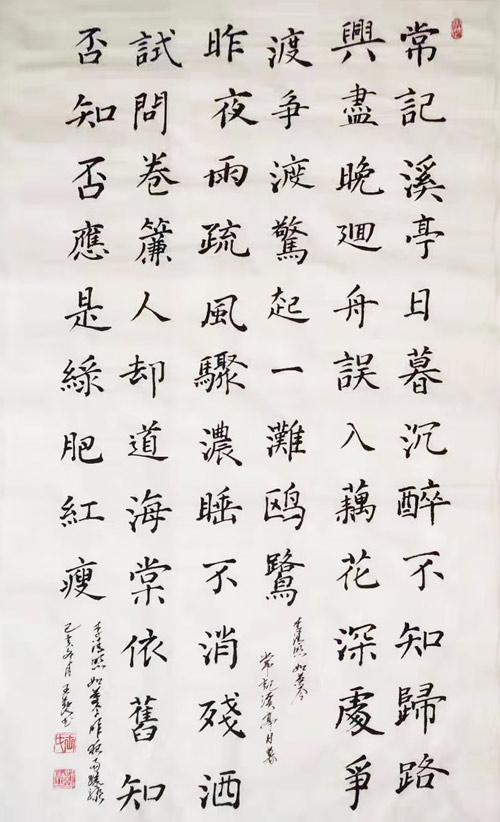 常記溪亭日暮沉醉不知歸路
興盡晚迴舟誤入藕花深處爭
渡爭渡驚起一灘鷗鷺
李清照如夢令
常記溪亭日暮
昨夜雨疏風驟濃睡不消殘酒
試問卷簾人却道海棠依舊知
否知否應是綠肥紅瘦
李清照如夢令昨夜雨疏風驟
己亥年